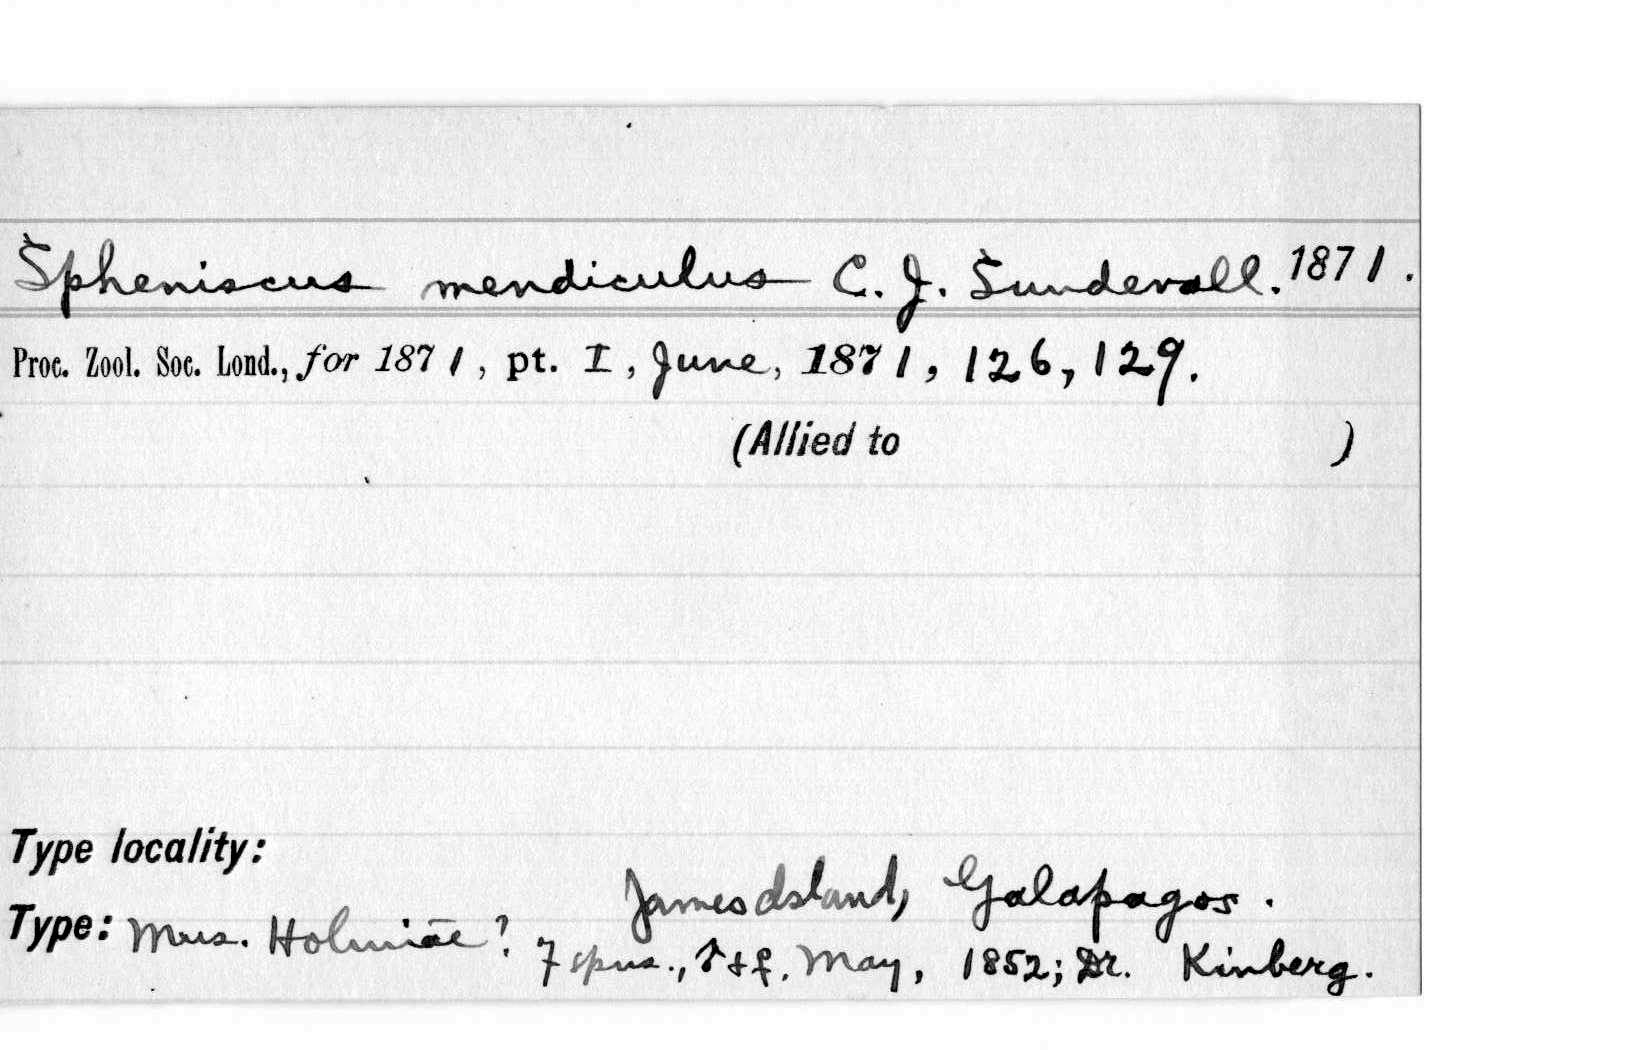 Spheniscus mendiculus C. J. Sundevall. 1871.
Proc. Zool. Soc. Lond., for 1871, pt. I, June, 1871, 126, 129.
(Allied to )
Type locality:
James Island, Galapagos.
Type: Mus. Holmiae? 7 spns., ♂ + ♀. May, 1852; Dr. Kinberg.